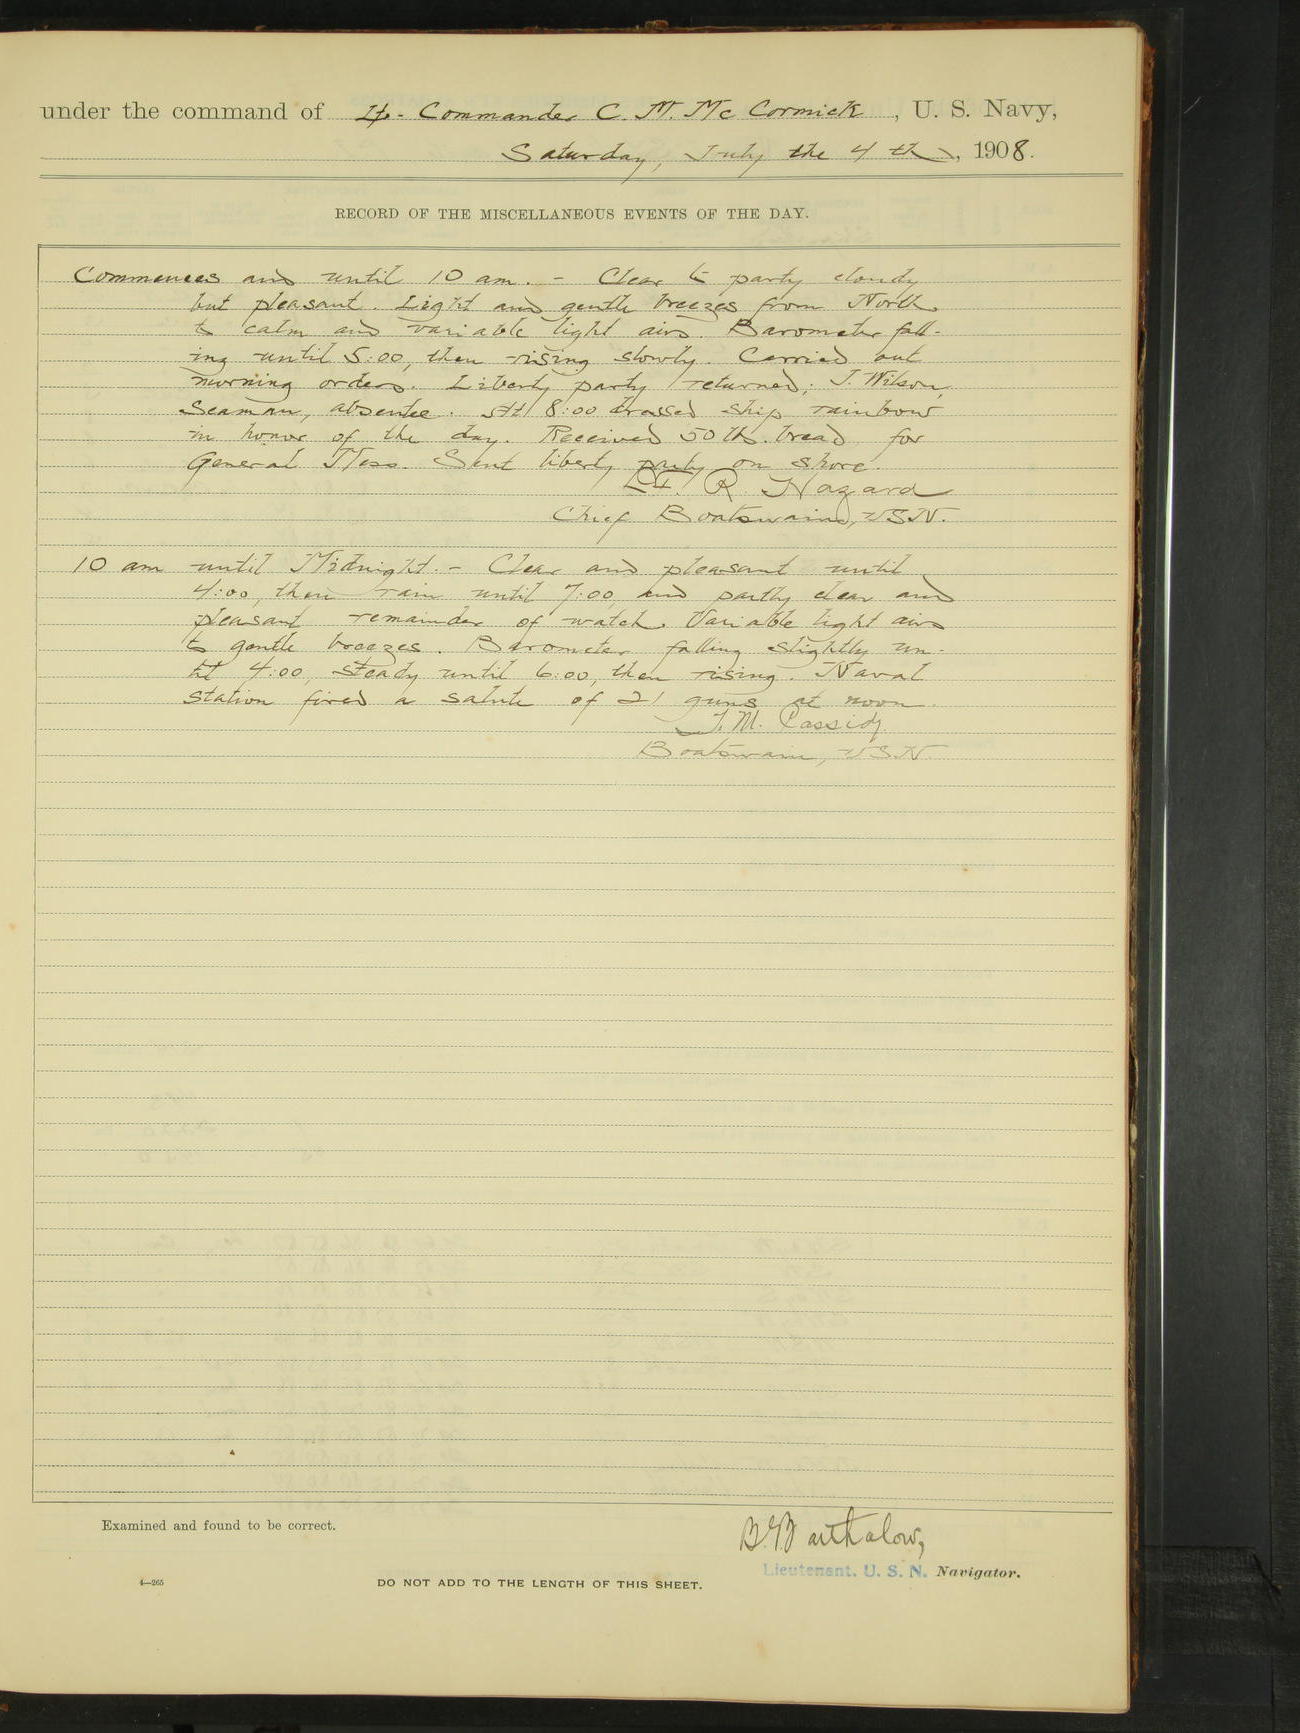 under the command of Lt. Commander C. M. Mc Cormick, U. S. Navy,
Saturday, July the 4 th, 1908.
RECORD OF THE MISCELLANEOUS EVENTS OF THE DAY.
Commences and until 10 am. - Clear to party cloudy
but pleasant. Light and gentle breezes from North
to calm and variable light airs. Barometer fall-
ing until 5:00, then rising slowly. Carried out
morning orders. Liberty party returned; J. Wilson,
Seaman, absentee. At 8:00 dressed ship rainbow
in honor of the day. Received 50 lb. bread for
General Mess. Sent liberty party on shore.
R. Hazard
Chief Boatswain, USN.
10 am until Midnight. - Clear and pleasant until
4:00, then rain until 7:00, and partly clear and
pleasant remainder of watch. Variable light airs
to gentle breezes. Barometer falling slightly un-
til 4:00, steady until 6:00, then rising. Naval
Station fired a salute of 21 guns at noon.
J. M. Cassidy.
Boatswain, USN.
Examined and found to be correct.
Barthalow,
Lieutenant, U. S. N. Navigator.
4—265
DO NOT ADD TO THE LENGTH OF THIS SHEET.